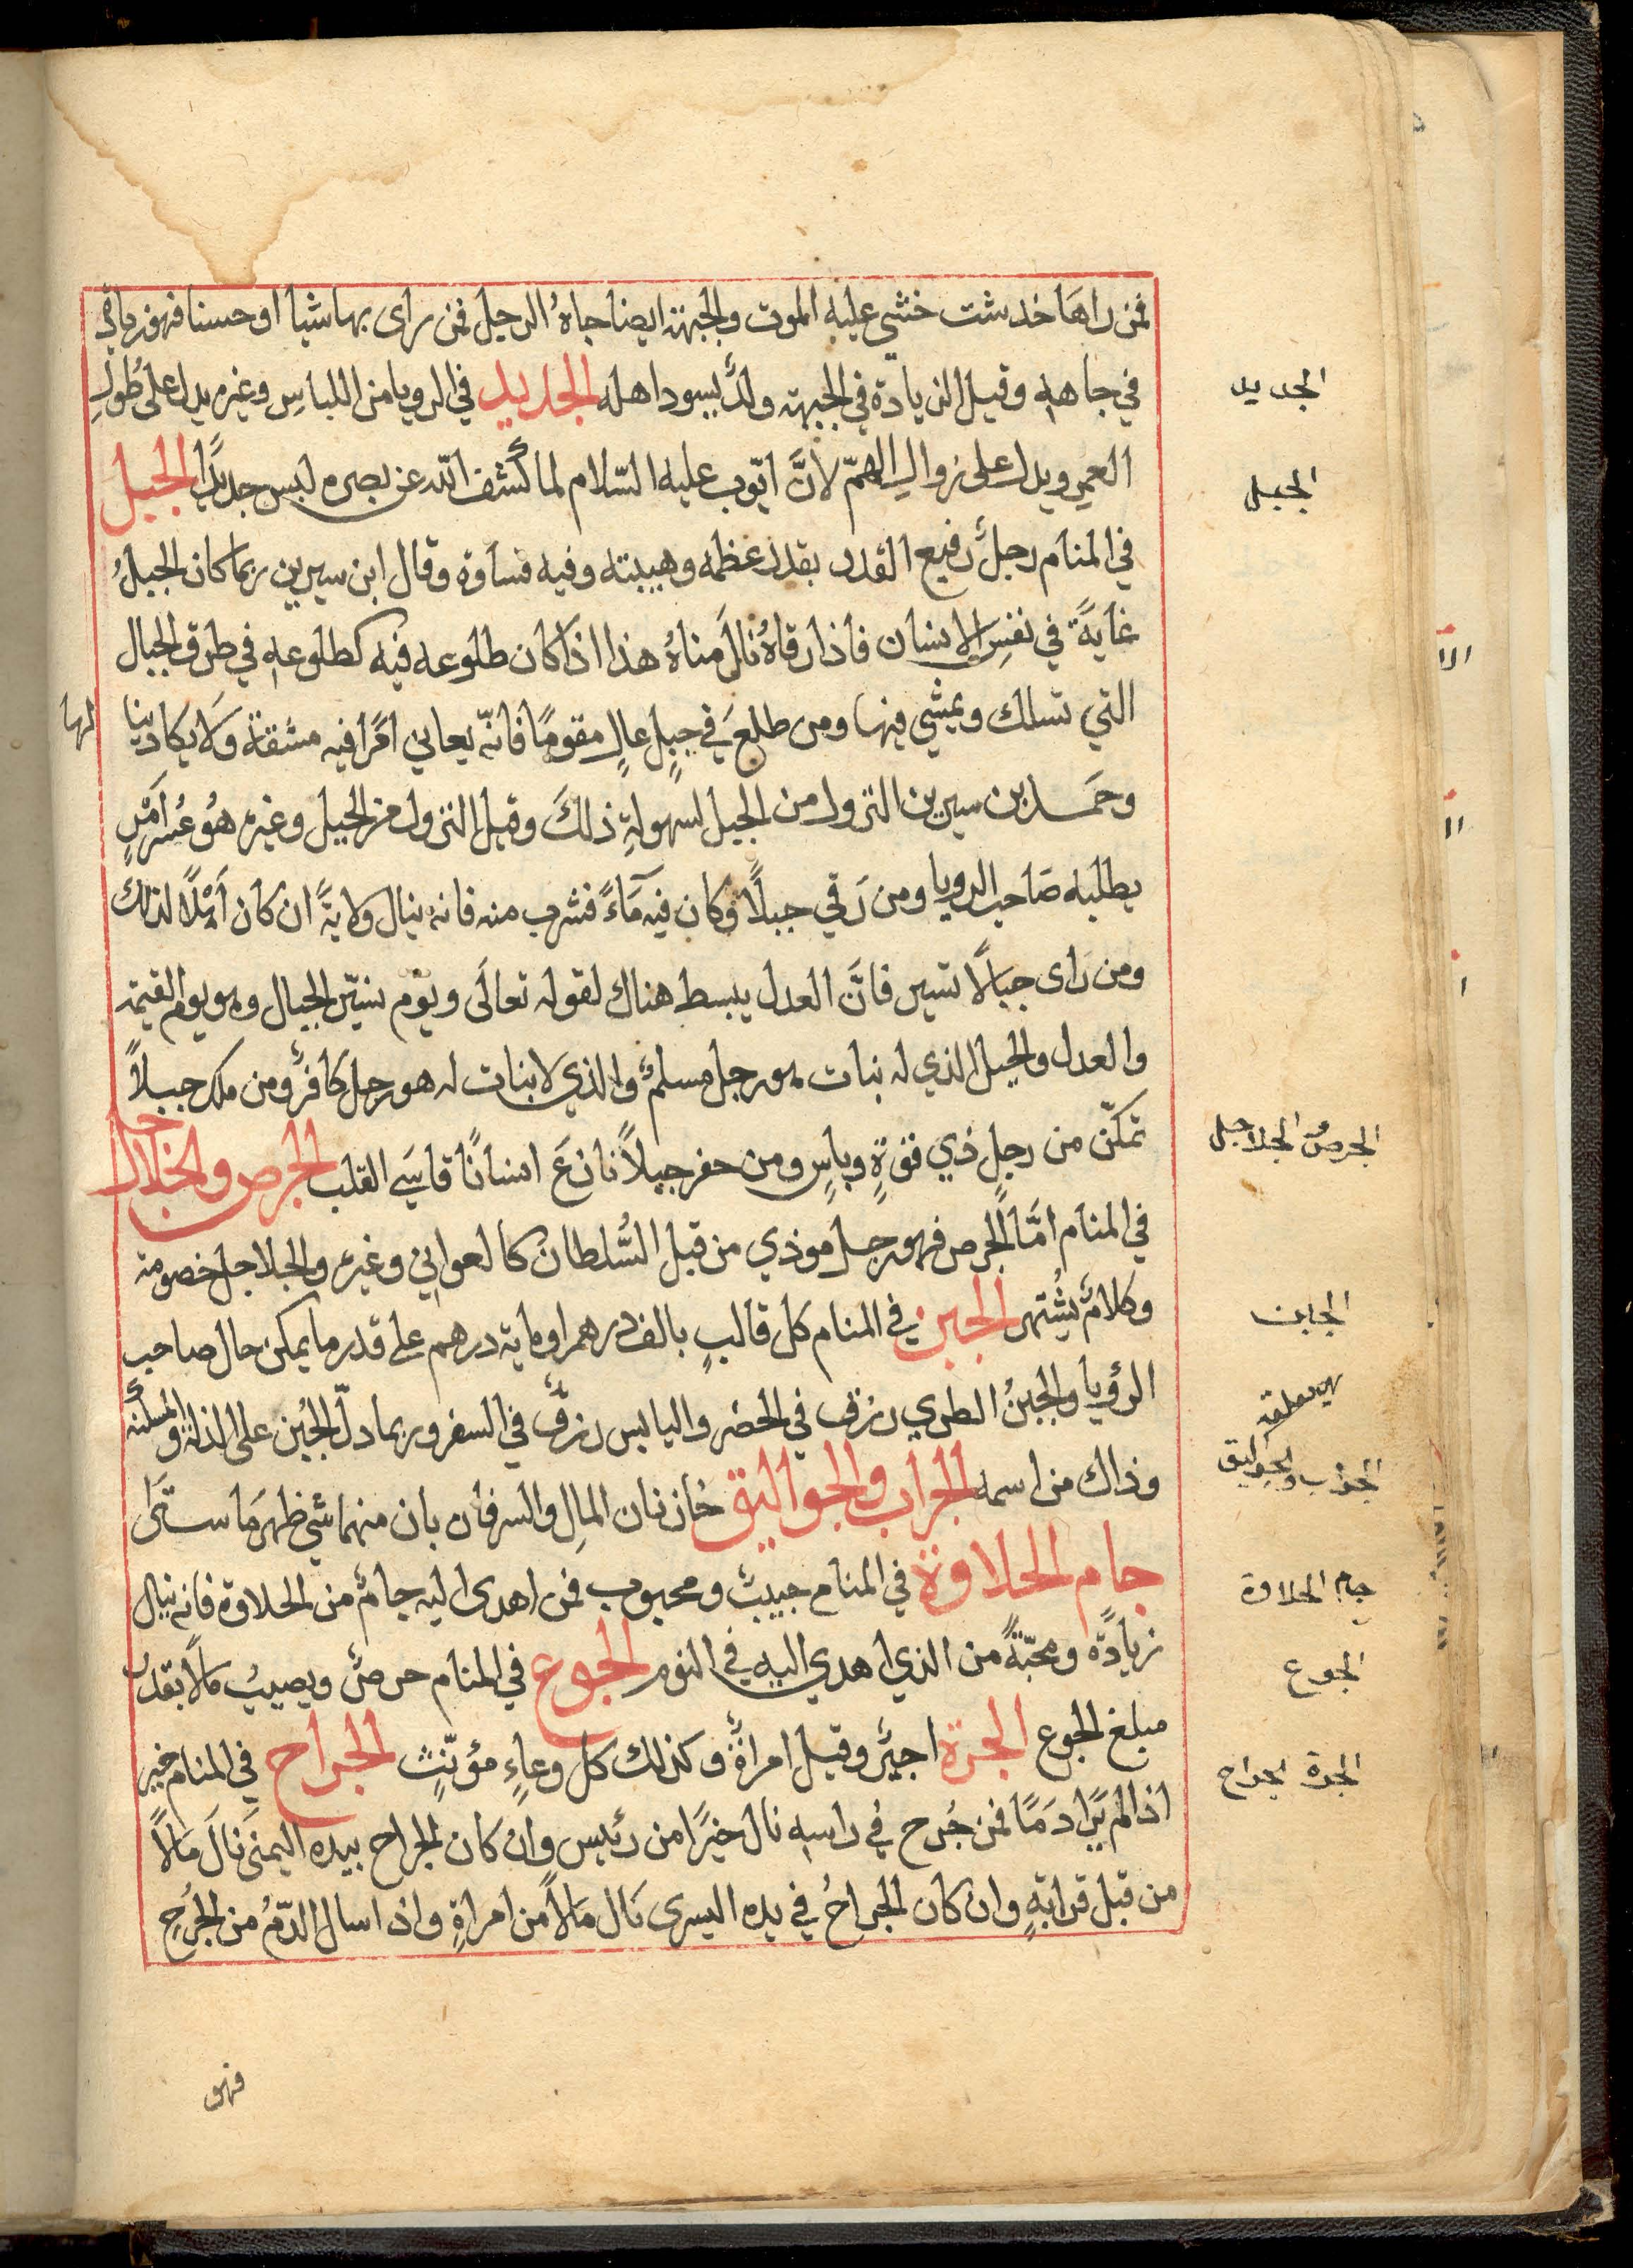 فمن راها خدشت خشي عليه الموت والجبهة ايضا جاهُ الرجل فمن راى بها شيا او حسنا فهو زيادة
في جاهه وقيل الزيادة في الجبهة ولدٌ يسود اهله الجديد في الرويا من اللباس وغيره يدل على طُول
العمر ويدل على زوال الهمّ لانَّ ايّوب عليه السّلام لما كُشف اللّه عن بصره لبس جديدًا الجبل
في المنام رجلٌ رفيع القدر بقدر عظمه وهيبته وفيه قساوة وقال ابن سيرين ربما كان الجبلُ
غايةً في نفسِ الانسان فاذا رقاهُ نالَ مناهُ هذا اذا كان طلوعه فيه كطلوعهِ في طرق الجبال
التي تسلك ويمشي فيها ومن طلعَ في جبلٍ عالٍ مقومًا فانّه يعاني امرًا فيه مشقة ولا يكاد ينالها
وحمد ابن سيرين النزول من الجبل لسهولةِ ذلكَ وقيل النزول من الجبل وغيره هُو عُسر امْرٍ
يطلبه صَاحب الرويا ومن رَقي جبلًا وكان فيه مَاءً فشرب منه فانه ينال ولايةً ان كان اهْلًا لذلك
ومن راى جبالًا تسير فانَّ العدل يبسط هناك لقوله تعالَى ويوم نسيّر الجبال وهو يوم القيمة
والعدل والجبل الذي له نبات هو رجل مسلمٌ والذي لا نبات له هو رجل كافرٌ ومن ملك جبلاً
تمكّن من رجلٍ ذي قوّةٍ وباسٍ ومن حفر جبلاً نازعَ انسانًا قاسَي القلب الجرص والجلاجل
في المنام امَّا الجرص فهو رجل موذي من قبل السُّلطان كالعواني وغيره والجلاجل خصومة
وكلامٌ يشُتهر الجبن في المنام كل قالبٍ بالف درهم او ماية درهم على قدر ما يمكن حال صاحب
الرؤيا والجبنُ الطري رزق في الحضر واليابس رزقٌ في السفر وربما دلّ الجُبن على الذلة والمسكنه
وذاك من اسمه الجراب والجواليق خازنان المال والسر فان بان منهما شي ظهر مَا ستَرَا
جام الحلاوة في المنام حبيبٌ ومحبوب فمن اهدى اليه جامٌ من الحلاوة فانه ينال
زيادَّه ومحبّةً من الذي اهدي اليه في النوم الجوع في المنام حرصٌ ويصيبُ مالًا بقدر
مبلغ الجوع الجرة اجيرٌ وقيل امراةٌ وكذلك كل وعاءٍ مؤنّثٍ الجراح في المنام خير
اذا لم يَرا دَمًا فمن جُرح في راسه نال خيرًا من رئيس وان كان الجراح بيده اليمنَى نالَ مَالاً
من قبل قرابةٍ وان كان الجراحُ في يده اليسرى نَال مَالاً من امراةٍ واذا سال الدّمُ من الجُرحِ
فهو
الجديد
الجبل
الجرص الجلاجل
الجبن
الجراب والجواليق
جام الحلاوة
الجوع
الجرة الجراح